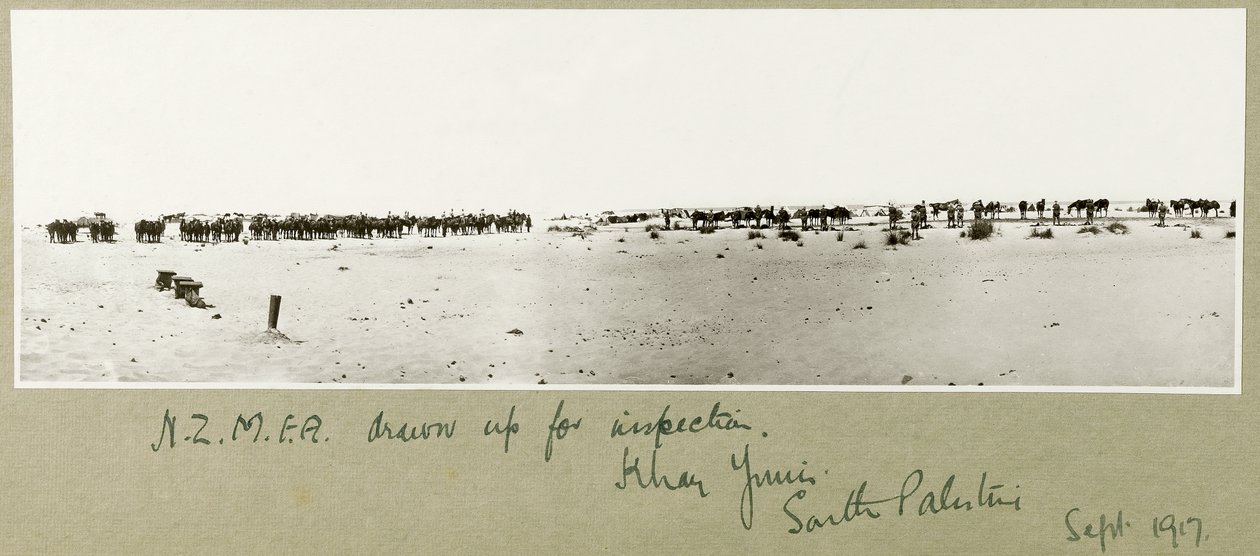 N.Z.M.F.A. drawn up for inspection.
Khan Yunis.
South Palestine
Sept. 1917.